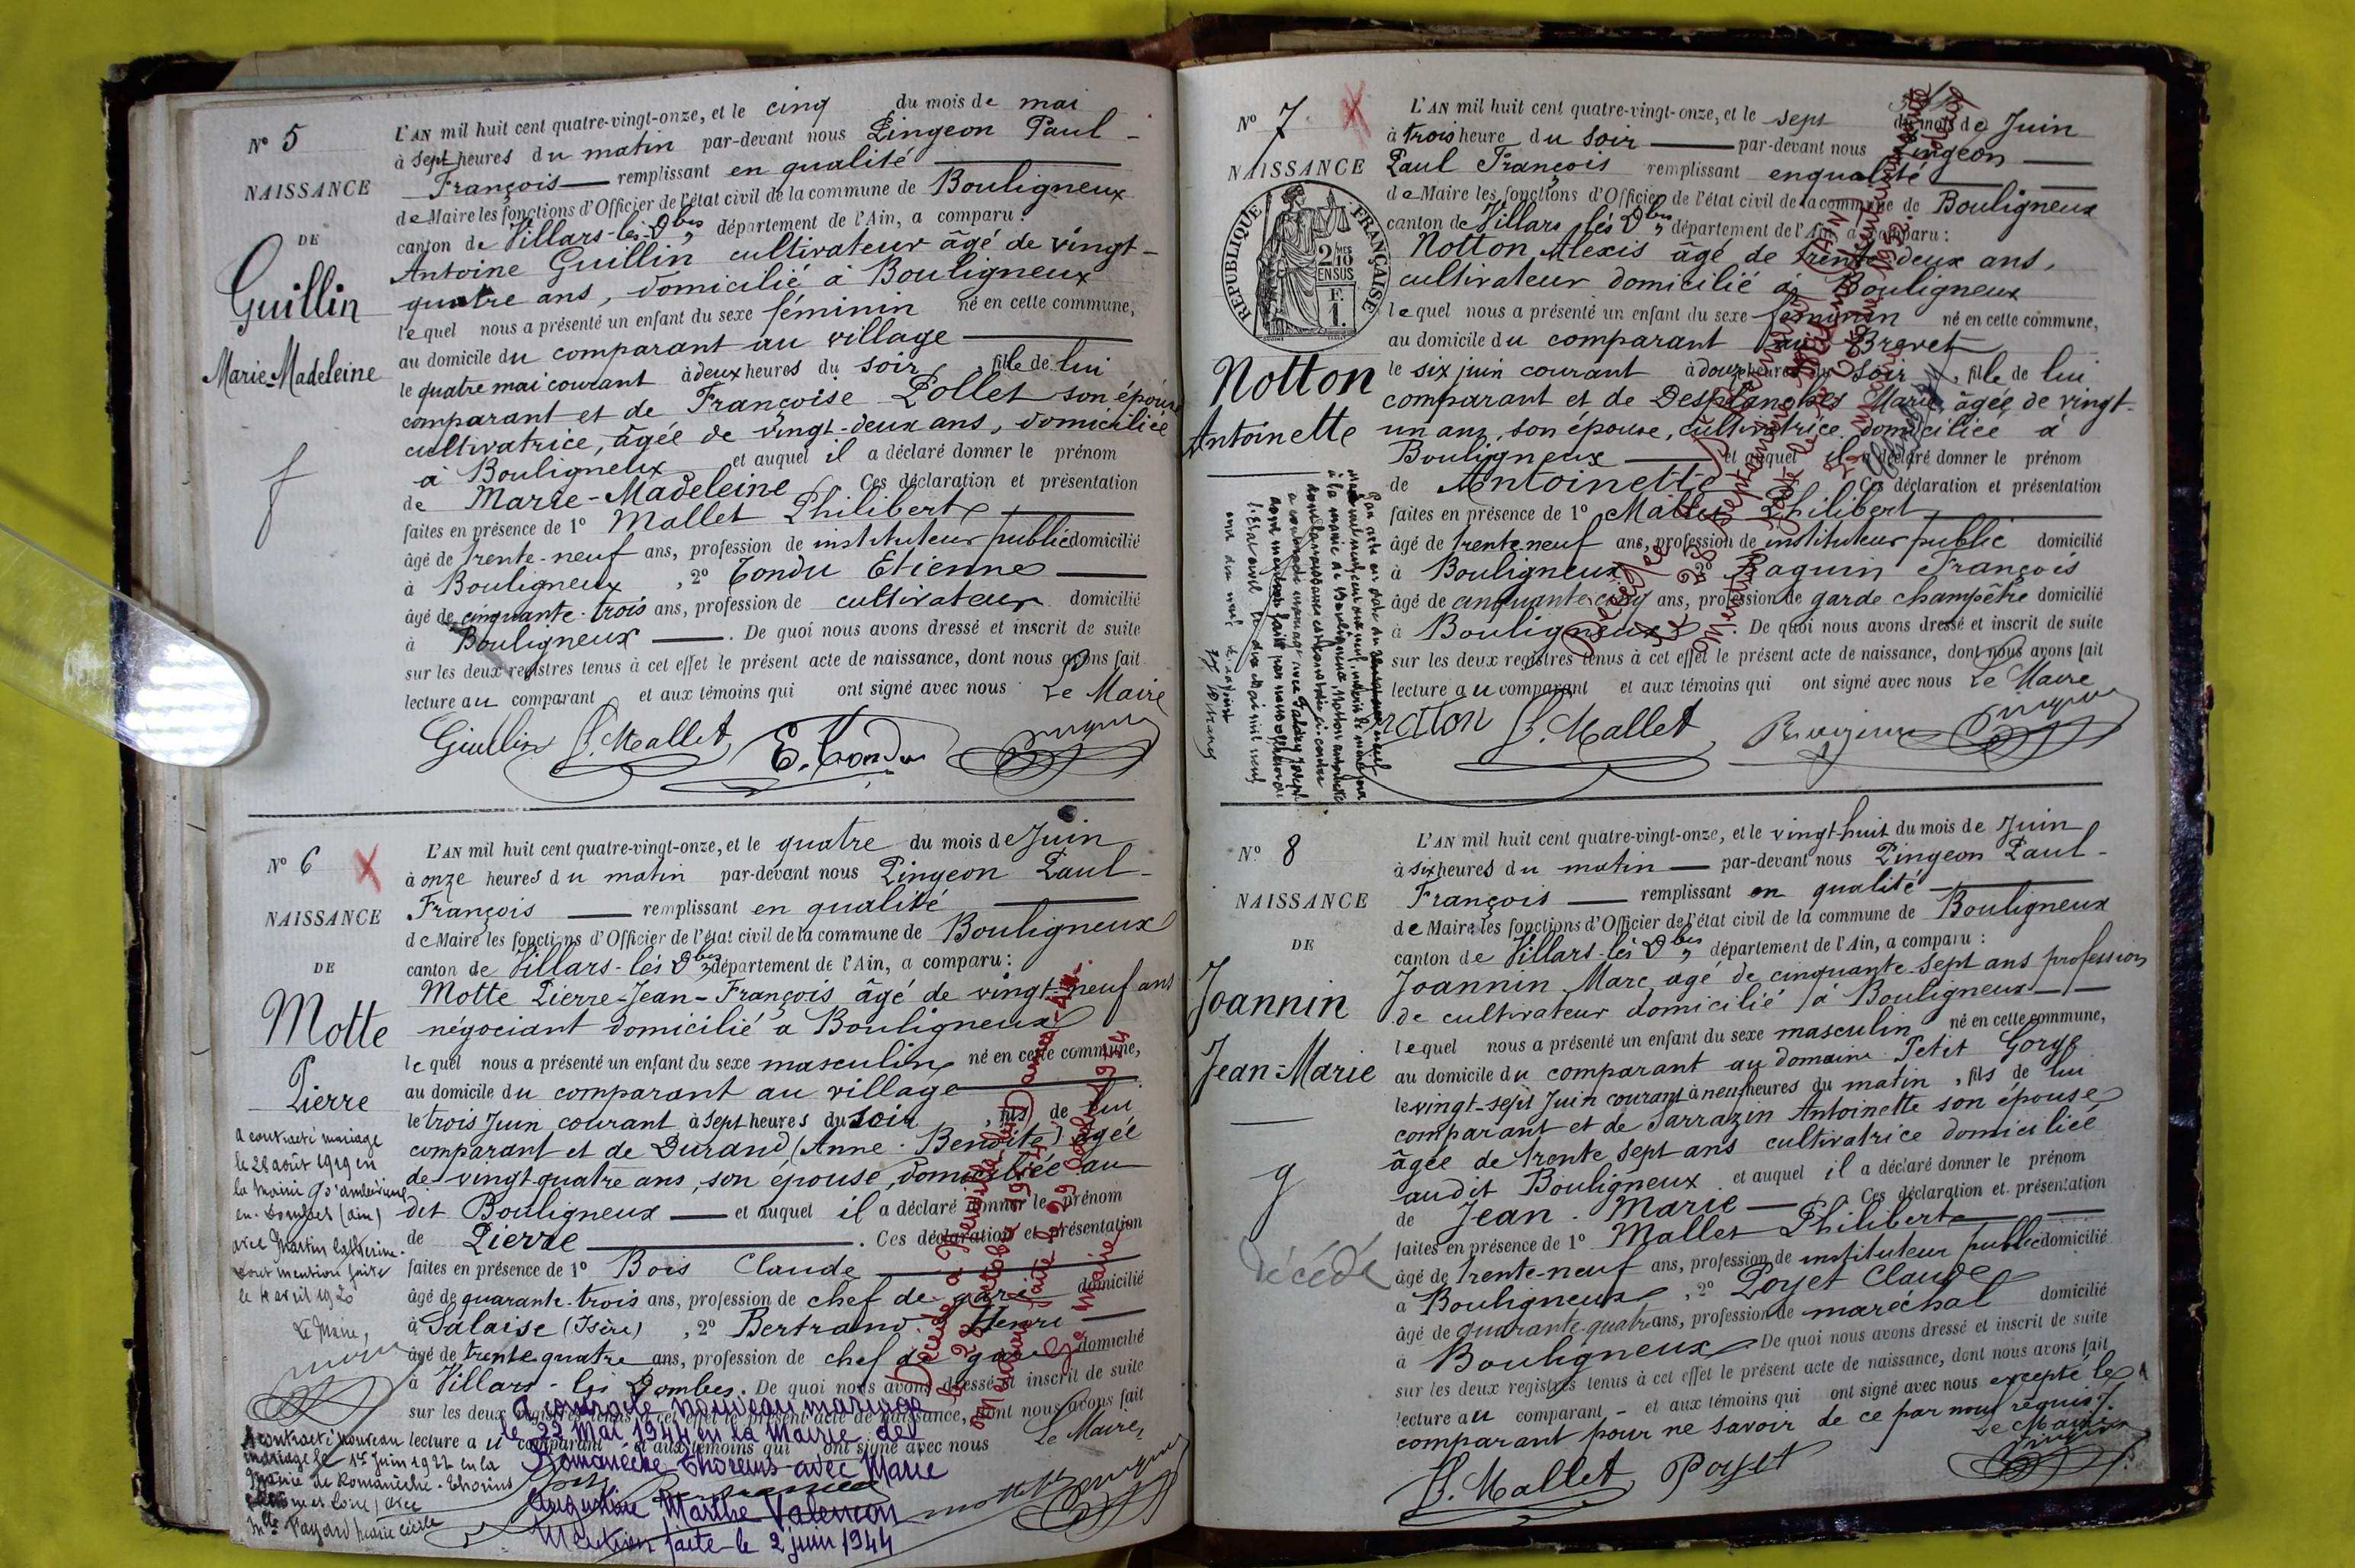 N° 5
NAISSANCE
DE
Guillin
Marie-Madeleine
f
L'AN mil huit cent quatre-vingt-onze, et le cinq du mois de mai
à sept heures du matin par-devant nous Pingeon Paul-
François remplissant en qualité
de Maire les fonctions d'Officier de l'état civil de la commune de Bouligneux
canton de Villars-lès-Dbes, département de l'Ain, a comparu :
Antoine Guillin cultivateur âgé de vingt-
quatre ans, domicilié à Bouligneux
lequel nous a présenté un enfant du sexe féminin né en cette commune,
au domicile du comparant au village
le quatre mai courant à deux heures du soir, fille de lui
comparant et de Françoise Pollet son épouse
cultivatrice, âgée de vingt-deux ans, domiciliée
à Bouligneux et auquel il a déclaré donner le prénom
de Marie-Madeleine. Ces déclaration et présentation
faites en présence de 1° Mallet Philibert
âgé de trente-neuf ans, profession de instituteur public domicilié
à Bouligneux, 2° Condu Etienne
âgé de cinquante-trois ans, profession de cultivateur domicilié
à Bouligneux. De quoi nous avons dressé et inscrit de suite
sur les deux registres tenus à cet effet le présent acte de naissance, dont nous avons fait
lecture au comparant et aux témoins qui ont signé avec nous Le Maire
Guillin P. Mallet E. Condu
N° 6
NAISSANCE
DE
Motte
Pierre
a contracté mariage
le 28 août 1919 en
la mairie de
en-Dombes (ain)
avec Martin Catherine.
dont mention faite
le avril 1920
Le Maire,
A contracté nouveau
mariage le 1er Juin 1922 en la
Mairie de Romanèche-Thorins
(Saône et Loire) avec
Mlle Marie Cécile
L'AN mil huit cent quatre-vingt-onze, et le quatre du mois de Juin
à onze heures du matin par-devant nous Pingeon Paul-
François remplissant en qualité
de Maire les fonctions d'Officier de l'état civil de la commune de Bouligneux
canton de Villars-lès-Dbes, département de l'Ain, a comparu :
Motte Pierre-Jean-François âgé de vingt-neuf ans
négociant domicilié à Bouligneux
lequel nous a présenté un enfant du sexe masculin né en cette commune,
au domicile du comparant au village
le trois Juin courant à sept heures du soir, fils de lui
comparant et de Durand (Anne-Benoîte) âgée
de vingt quatre ans, son épouse, domiciliée au
dit Bouligneux et auquel il a déclaré donner le prénom
de Pierre. Ces déclaration et présentation
faites en présence de 1° Bois Claude
âgé de quarante-trois ans, profession de chef de gare domicilié
à Salaise (Isère), 2° Bertrand Henri
âgé de trente quatre ans, profession de chef de gare domicilié
à Villars-les Dombes. De quoi nous avons dressé et inscrit de suite
sur les deux registres tenus à cet effet le présent acte de naissance, dont nous avons fait
lecture au comparant et aux témoins qui ont signé avec nous Le Maire,
A contracté nouveau mariage
le 22 Mai 1944 en la Mairie de
Romanèche-Thorins avec Marie
Augustine Marthe
Mention faite le 2 juin 1944
Motte
Décédé à
le 22 Octobre 1954
Mention faite le 29 Octobre 1954
Le Maire
N° 7
NAISSANCE
REPUBLIQUE FRANÇAISE
2/10
EN SUS
F.
1.
Notton
Antoinette
L'AN mil huit cent quatre-vingt-onze, et le sept du mois de Juin
à trois heure du soir par-devant nous Pingeon
Paul François remplissant en qualité
de Maire les fonctions d'Officier de l'état civil de la commune de Bouligneux
canton de Villars lès Dbes, département de l'Ain, a comparu :
Notton Alexis âgé de trente deux ans,
cultivateur domicilié à Bouligneux
lequel nous a présenté un enfant du sexe féminin né en cette commune,
au domicile du comparant au Brevet
le six juin courant à douze heures du soir, fille de lui
comparant et de Desplanches Marie, âgée de vingt-
un ans, son épouse, cultivatrice domiciliée à
Bouligneux et auquel il a déclaré donner le prénom
de Antoinette. Ces déclaration et présentation
faites en présence de 1° Mallet Philibert
âgé de trente neuf ans, profession de instituteur public domicilié
à Bouligneux, 2° Raquin François
âgé de cinquante-cinq ans, profession de garde champêtre domicilié
à Bouligneux. De quoi nous avons dressé et inscrit de suite
sur les deux registres tenus à cet effet le présent acte de naissance, dont nous avons fait
lecture au comparant et aux témoins qui ont signé avec nous Le Maire
Notton P. Mallet
Décédée
le 28 Septembre
N° 8
NAISSANCE
DE
Joannin
Jean-Marie
g
Décédé
L'AN mil huit cent quatre-vingt-onze, et le vingt-huit du mois de Juin
à six heures du matin par-devant nous Pingeon Paul-
François remplissant en qualité
de Maire les fonctions d'Officier de l'état civil de la commune de Bouligneux
canton de Villars-lès Dbes, département de l'Ain, a comparu :
Joannin Marc âgé de cinquante-sept ans profession
de cultivateur domicilié à Bouligneux
lequel nous a présenté un enfant du sexe masculin né en cette commune,
au domicile du comparant au domaine Petit Gorge
le vingt-sept Juin courant à neuf heures du matin, fils de lui
comparant et de Sarrazin Antoinette son épouse
âgée de trente sept ans cultivatrice domiciliée
audit Bouligneux et auquel il a déclaré donner le prénom
de Jean-Marie. Ces déclaration et présentation
faites en présence de 1° Mallet Philibert
âgé de trente-neuf ans, profession de instituteur public domicilié
à Bouligneux, 2° Poyet Claude
âgé de quarante-quatre ans, profession de maréchal domicilié
à Bouligneux. De quoi nous avons dressé et inscrit de suite
sur les deux registres tenus à cet effet le présent acte de naissance, dont nous avons fait
lecture au comparant et aux témoins qui ont signé avec nous excepté le
comparant pour ne savoir de ce par nous requis.
Le Maire
P. Mallet Poyet